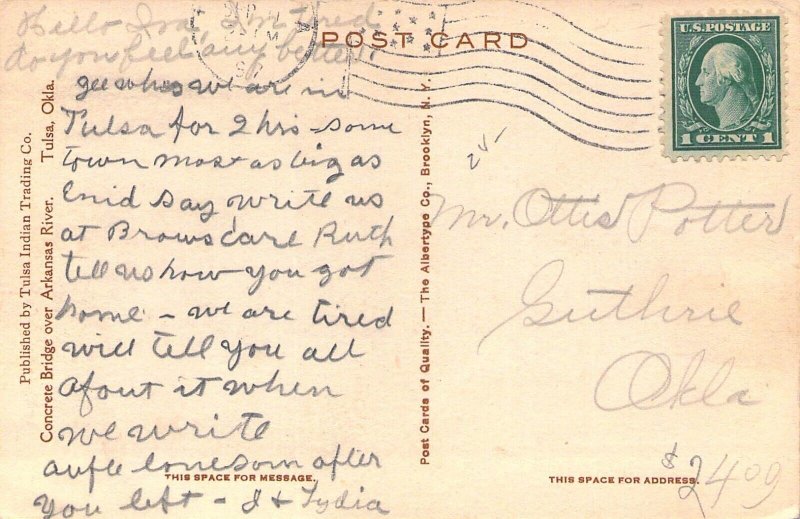 Hello Ira, I'm tired
do you feel any better?
POST CARD
U.S. POSTAGE
1 CENT 1
gee whos we are in
Tulsa for 2 hrs - some
town most as big as
Enid Say write us
at Brows care Ruth
tell us how you got
home - we are tired
will tell you all
about it when
we write
aufle lonesom after
you left - J + Lydia
THIS SPACE FOR MESSAGE.
Published by Tulsa Indian Trading Co.
Concrete Bridge over Arkansas River. Tulsa, Okla.
Post Cards of Quality. — The Albertype Co., Brooklyn, N. Y.
Mr. Ottis Potter
Guthrie
Okla
THIS SPACE FOR ADDRESS.